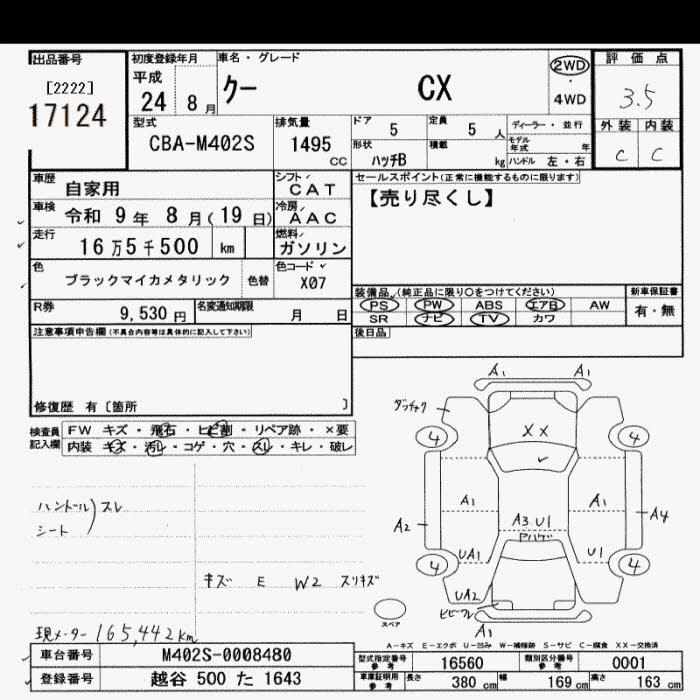 出品番号
[2222]
17124
初度登録年月
平成
24 8月
車名・グレード
クー CX
2WD
・
4WD
評価点
3.5
外装 内装
C C
型式
CBA-M402S
排気量
1495 CC
ドア 5
定員 5 人
形状 ハッチB
積載 kg
ディーラー・並行
モデル年式 年
ハンドル 左・右
車歴 自家用
シフト CAT
車検 令和 9年 8月(19日)
冷房 AAC
走行 16万5千500 km
燃料 ガソリン
色 ブラックマイカメタリック 色替
色コード X07
R券 9,530円
名変通知期限 月 日
セールスポイント(正常に機能するものに限ります)
【売り尽くし】
装備品(純正品に限り○をつけてください)
PS PW ABS エアB AW
SR ナビ TV カワ
新車保証書
有・無
後日品
注意事項申告欄(不具合内容等は具体的に記入して下さい)
修復歴 有〔箇所 〕
検査員記入欄
FW キズ・飛石・ヒビ割・リペア跡・×要
内装 キズ・汚れ・コゲ・穴・スレ・キレ・破レ
ハンドル)スレ
シート
キズ E W2 スリキズ
現メーター165,442km
A1 A1
4 4
XX
A1 A1
A2 A4
A3 U1
UA1 U1
4 4
UA2
ヒビワレ
A1
スペア
A-キズ E-エクボ U-凹み W-補修跡 S-サビ C-腐食 XX-交換済
車台番号 M402S-0008480
登録番号 越谷 500 た 1643
型式指定番号 参考 16560
類別区分番号 参考 0001
車庫証明用 参考 長さ 380 cm 幅 169 cm 高さ 163 cm